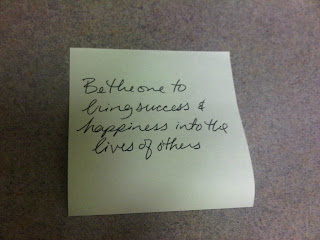 Be the one to
bring success &
happiness into the
lives of others